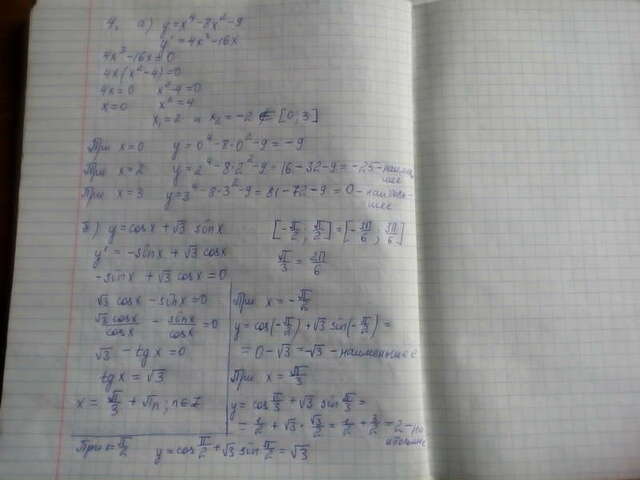 4. а) y = x⁴ - 8x² - 9
y' = 4x³ - 16x
4x³ - 16x = 0
4x(x² - 4) = 0
4x = 0 x² - 4 = 0
x = 0 x² = 4
x₁ = 2 и x₂ = -2 ∉ [0; 3]
При x = 0 y = 0⁴ - 8·0² - 9 = -9
При x = 2 y = 2⁴ - 8·2² - 9 = 16 - 32 - 9 = -25 - наимень-
шее
При x = 3 y = 3⁴ - 8·3² - 9 = 81 - 72 - 9 = 0 - наиболь-
шее
б) y = cos x + √3 sin x [-π/2; π/2] = [-3π/6; 3π/6]
y' = -sin x + √3 cos x π/3 = 2π/6
-sin x + √3 cos x = 0
√3 cos x - sin x = 0
√3 cos x/cos x - sin x/cos x = 0
√3 - tg x = 0
tg x = √3
x = π/3 + πn; n∈Z
При x = -π/2
y = cos(-π/2) + √3 sin(-π/2) =
= 0 - √3 = -√3 - наименьшее
При x = π/3
y = cos π/3 + √3 sin π/3 =
= 1/2 + √3 · √3/2 = 1/2 + 3/2 = 2 - на
При x = π/2 y = cos π/2 + √3 sin π/2 = √3